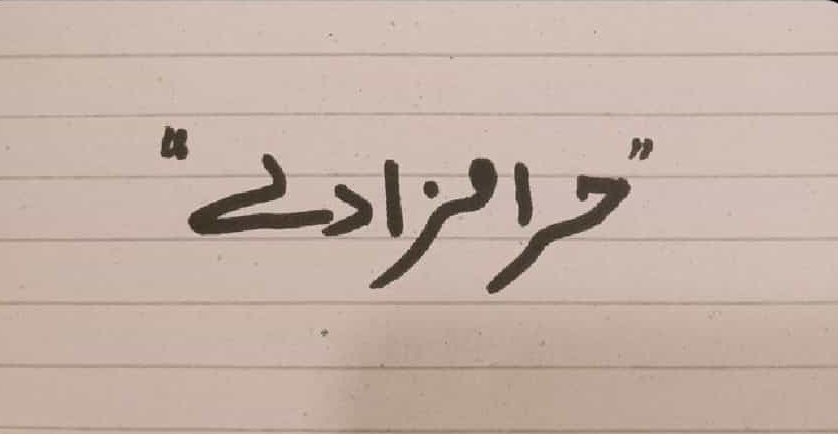 "حرامزادے"